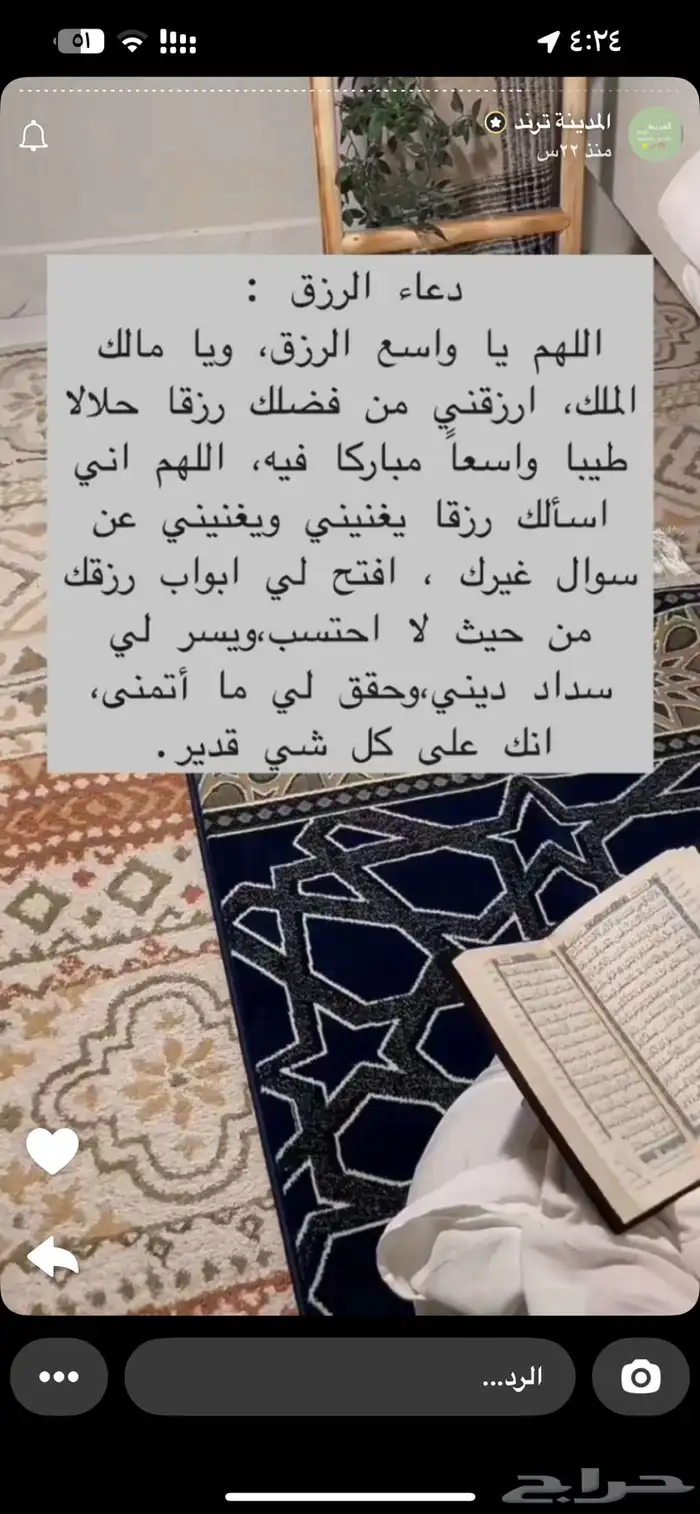 ٤:٢٤
٥١
المدينة ترند
منذ ٢٢س
دعاء الرزق :
اللهم يا واسع الرزق، ويا مالك
الملك، ارزقني من فضلك رزقا حلالا
طيبا واسعاً مباركا فيه، اللهم اني
اسألك رزقا يغنيني ويغنيني عن
سوال غيرك ، افتح لي ابواب رزقك
من حيث لا احتسب،ويسر لي
سداد ديني،وحقق لي ما أتمنى،
انك على كل شي قدير.
الرد...
حراج